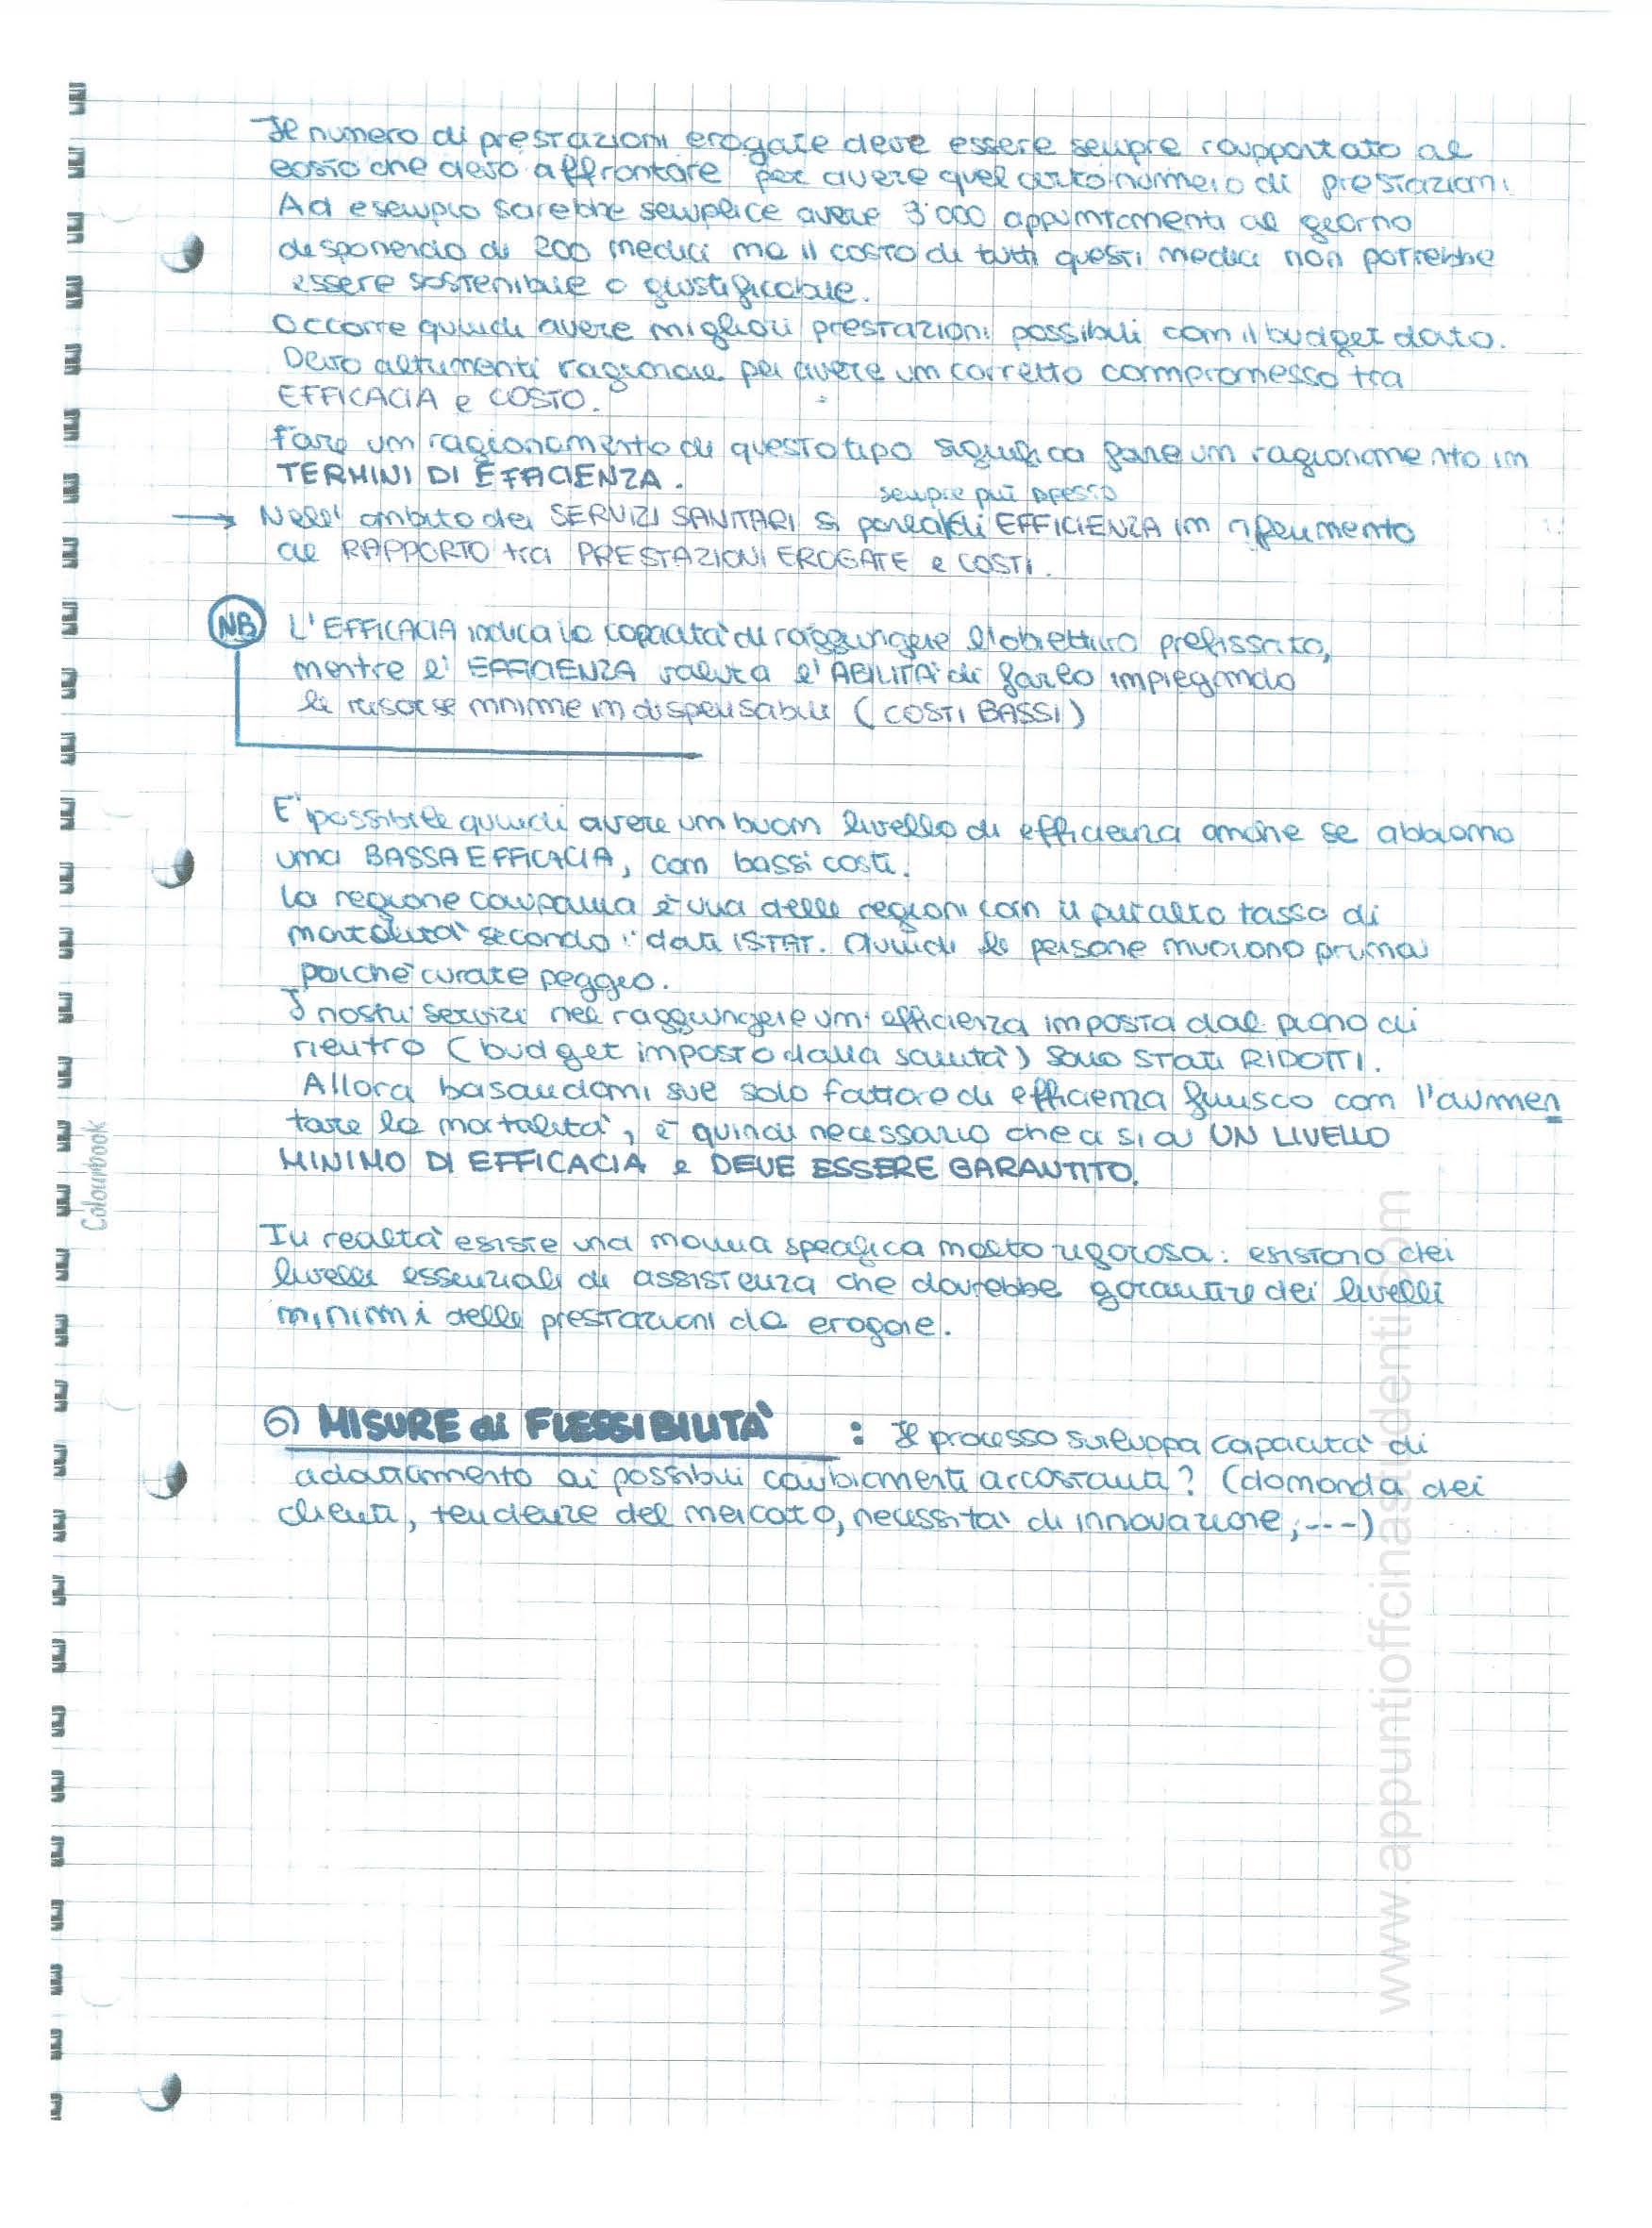 Il numero di prestazioni erogate deve essere sempre rapportato al
costo che devo affrontare per avere quel certo numero di prestazioni.
Ad esempio sarebbe semplice avere 3'000 appuntamenti al giorno
disponendo di 200 medici ma il costo di tutti questi medici non potrebbe
essere sostenibile o giustificabile.
Occorre quindi avere migliori prestazioni possibili con il budget dato.
Devo altrimenti ragionare per avere un corretto compromesso tra
EFFICACIA e COSTO.
Fare un ragionamento di questo tipo significa fare un ragionamento in
TERMINI DI EFFICIENZA.
sempre più spesso
→ Nell'ambito dei SERVIZI SANITARI si parla di EFFICIENZA in riferimento
al RAPPORTO tra PRESTAZIONI EROGATE e COSTI.
NB L'EFFICACIA indica la capacità di raggiungere l'obiettivo prefissato,
mentre l'EFFICIENZA valuta l'ABILITÀ di farlo impiegando
le risorse minime indispensabili (COSTI BASSI)
E' possibile quindi avere un buon livello di efficienza anche se abbiamo
una BASSA EFFICACIA, con bassi costi.
La regione campania è una delle regioni con il più alto tasso di
mortalità secondo i dati ISTAT. Quindi le persone muoiono prima
poiché curate peggio.
I nostri servizi nel raggiungere un'efficienza imposta dal piano di
rientro (budget imposto dalla sanità) sono STATI RIDOTTI.
Allora basandomi sul solo fattore di efficienza finisco con l'aumen
tare la mortalità, è quindi necessario che ci sia UN LIVELLO
MINIMO DI EFFICACIA e DEVE ESSERE GARANTITO.
In realtà esiste una norma specifica molto rigorosa: esistono dei
livelli essenziali di assistenza che dovrebbe garantire dei livelli
minimi delle prestazioni da erogare.
6) MISURE di FLESSIBILITÀ : Il processo sviluppa capacità di
adattamento ai possibili cambiamenti circostanti? (domanda dei
clienti, tendenze del mercato, necessità di innovazione,---)
Colourbook
www.appuntioffcinastudenti.com